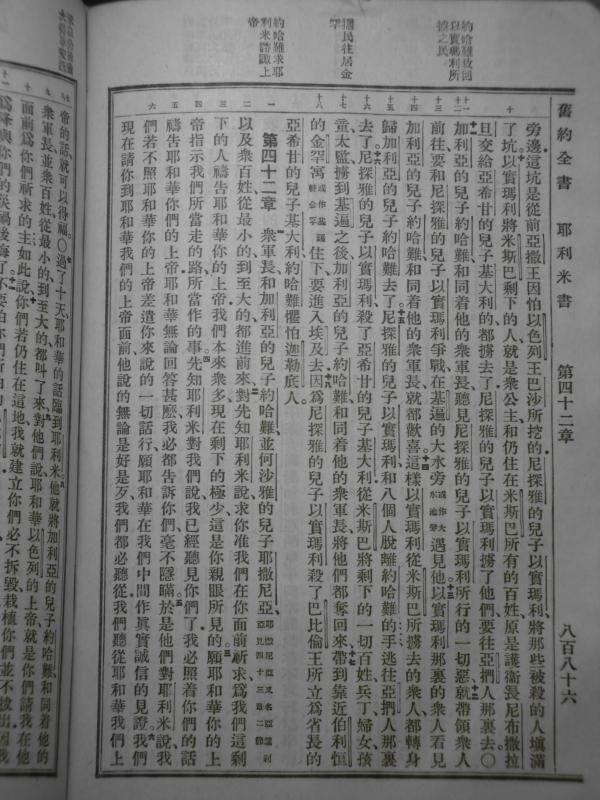 舊約全書 耶利米書 第四十二章 八百八十六
約哈難救回以實瑪利所擄之民
擄民往居金罕
約哈難求耶利米諮諏上帝
旁邊這坑是從前亞撒王因怕以色列王巴沙所挖的尼探雅的兒子以實瑪利將那些被殺的人填滿
十 了坑以實瑪利將米斯巴剩下的人就是衆公主和仍住在米斯巴所有的百姓原是護衛長尼布撒拉
旦交給亞希甘的兒子基大利的都擄去了尼探雅的兒子以實瑪利擄了他們要往亞捫人那裏去〇
十一 加利亞的兒子約哈難和同着他的衆軍長聽見尼探雅的兒子以實瑪利所行的一切惡就帶領衆人
前往要和尼探雅的兒子以實瑪利爭戰在基遍的大水旁或作大水池旁遇見他以實瑪利那裏的衆人看見
加利亞的兒子約哈難和同着他的衆軍長就都歡喜這樣以實瑪利從米斯巴所擄去的衆人都轉身
歸加利亞的兒子約哈難去了尼探雅的兒子以實瑪利和八個人脫離約哈難的手逃往亞捫人那裏
去了尼探雅的兒子以實瑪利殺了亞希甘的兒子基大利從米斯巴將剩下的一切百姓兵丁婦女孩
童太監擄到基遍之後加利亞的兒子約哈難和同着他的衆軍長將他們都奪回來帶到靠近伯利恆
的金罕寓住下要進入埃及去因爲尼探雅的兒子以實瑪利殺了巴比倫王所立爲省長的
亞希甘的兒子基大利約哈難懼怕迦勒底人
第四十二章 衆軍長和加利亞的兒子約哈難並何沙雅的兒子耶撒尼亞耶撒尼亞又名亞撒利亞見四十三章二節
以及衆百姓從最小的到至大的都進前來對先知耶利米說求你准我們在你面前祈求爲我們這剩
下的人禱告耶和華你的上帝我們本來衆多現在剩下的極少這是你親眼所見的願耶和華你的上
帝指示我們所當走的路所當作的事先知耶利米對我們說我已經聽見你們了我必照着你們的話
禱告耶和華你們的上帝耶和華無論回答甚麼我必都告訴你們毫不隱瞞於是他們對耶利米說我
們若不照耶和華你的上帝差遣你來說的一切話行願耶和華在我們中間作眞實誠信的見證我們
現在請你到耶和華我們的上帝面前他說的無論是好是歹我們都必聽從我們聽從耶和華我們上
帝的話就可以得福〇過了十天耶和華的話臨到耶利米他就將加利亞的兒子約哈難和同着他的
衆軍長並衆百姓從最小的到至大的都叫了來對他們說耶和華以色列的上帝就是你們請我在他
面前爲你們祈求的主如此說你們若仍住在這地我就建立你們必不拆毀栽植你們並不拔出因我